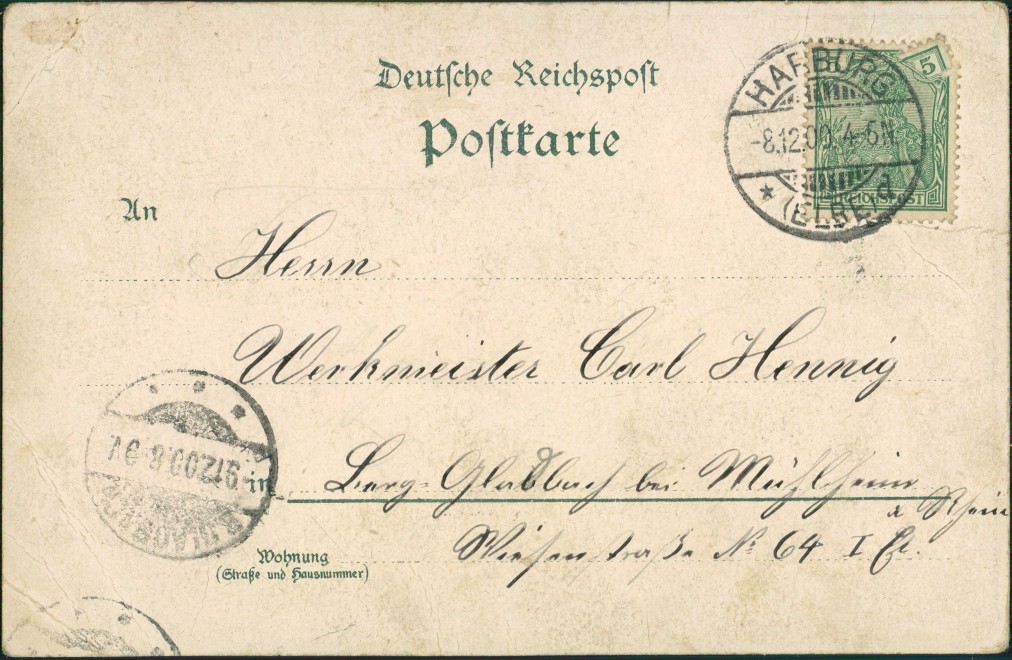 Deutsche Reichspost
Postkarte
HARBURG
-8.12.00.4-5N
* (ELBE) d
5
REICHSPOST
An
Herrn
Werkmeister Carl Hennig
in Berg-Gladbach bei Mühlheim
a Rhein
Wiesenstraße No 64 I Et.
Wohnung
(Straße und Hausnummer)
9.12.00.8-9V